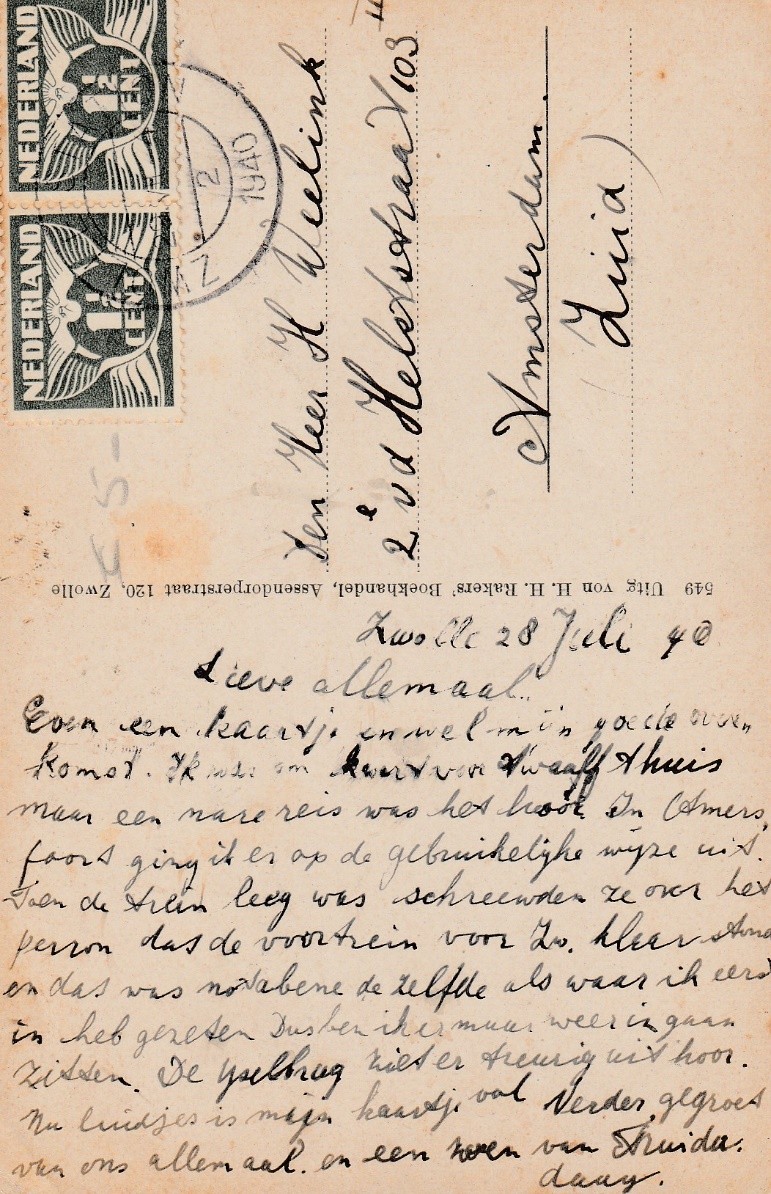 NEDERLAND
1½
CENT
NEDERLAND
1½
CENT
2
1940
MZ
Den Heer H Weelink
2e v d Helststraat 103 II
Amsterdam.
(Zuid)
€ 5-
549 Uitg von H. H. Rakers' Boekhandel, Assendorperstraat 120, Zwolle
Zwolle 28 Juli 40
Lieve allemaal.
Even een kaartje en wel mijn goede over
komst. Ik was om kwart voor twaalf thuis
maar een nare reis was het hoor In Amers,
foort ging ik er op de gebruikelijke wijze uit.
Toen de trein leeg was schreewden ze over het
perron das de voortrein voor Zw. klaar stond
en das was notabene de zelfde als waar ik eerst
in heb gezeten Dus ben ik er maar weer in gaan
zitten. De Yselbrug ziet er treurig uit hoor.
Nu luidjes is mijn kaartje vol Verder gegroet
van ons allemaal. en een zoen van Truida.
daag.